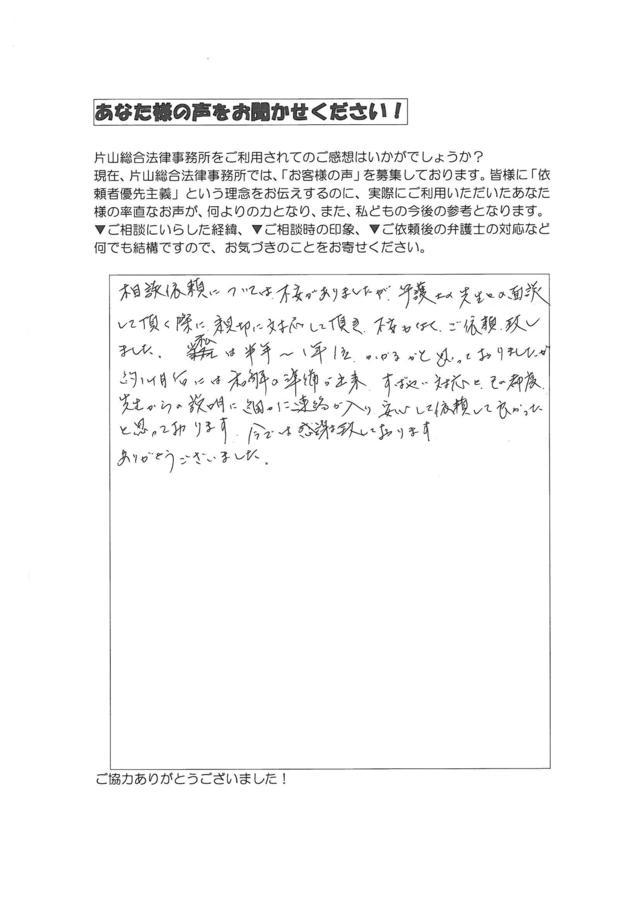 あなた様の声をお聞かせください！
片山総合法律事務所をご利用されてのご感想はいかがでしょうか？
現在、片山総合法律事務所では、「お客様の声」を募集しております。皆様に「依
頼者優先主義」という理念をお伝えするのに、実際にご利用いただいたあなた
様の率直なお声が、何よりの力となり、また、私どもの今後の参考となります。
▼ご相談にいらした経緯、▼ご相談時の印象、▼ご依頼後の弁護士の対応など
何でも結構ですので、お気づきのことをお寄せください。
相談依頼については不安がありましたが、弁護士の先生との面談
して頂く際に親切に対応して頂き、不安もなく、ご依頼致し
ました。私は半年～1年位かかるかと思っておりましたが
約1ヶ月後には和解の準備が出来、すばやい対応と、その都度、
先生からの説明に細かに連絡が入り安心して依頼して良かった
と思っております。今では感謝致しております
ありがとうございました。
ご協力ありがとうございました！